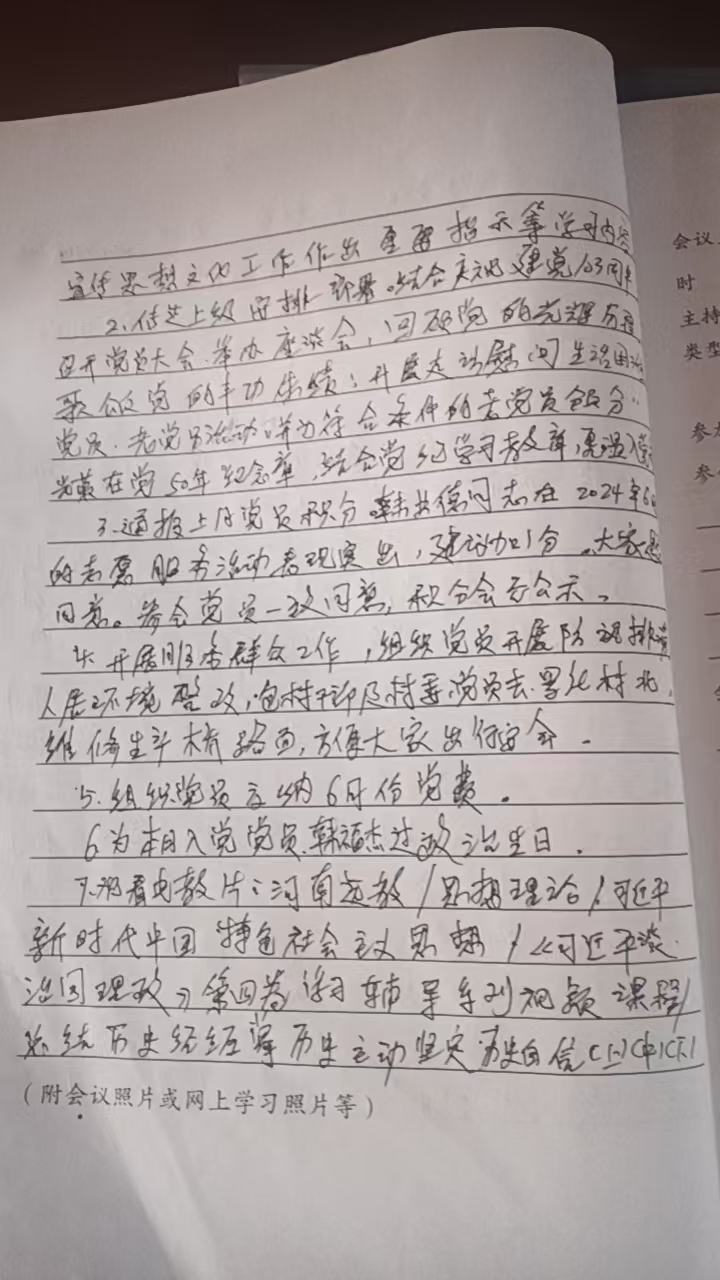 宣传思想文化工作作出重要指示等学习内容
2.传达上级安排部署。结合庆祝建党103周年
召开党员大会、举办座谈会，回顾党的光辉历程
歌颂党的丰功伟绩；开展走访慰问生活困难
党员、老党员活动；并为符合条件的老党员颁分
光荣在党50年纪念章，结合党纪学习教育，重温
3.通报上月党员积分。韩 德同志在2024年6月
的志愿服务活动表现突出，建议加1分。大家
同意。参会党员一致同意，积分会后公示。
4.开展服务群众工作，组织党员开展防 排
人居环境整改，包村干部及村委党员去 村北
维修生产桥路面，方便大家出行安全。
5.组织党员交纳6月份党费。
6为本月入党党员韩福杰过政治生日。
7.观看电教片：河南远教/思想理论/习近平
新时代中国特色社会主义思想/《习近平谈
治国理政》第四卷学习辅导系列视频课程/
总结历史经验 历史主动坚定历史自信(上)(中)(下)
(附会议照片或网上学习照片等)
会议
时
主持
类型
参
参